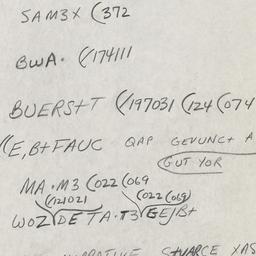 SAM3X (372
BWA. (/174111
BUERS+T (/197031 (124 (074
((E,B+FAUC QAP GEVUNC+ A
(GUT YOR
MA.M3 (022 (069
(121021 (022 (069)
WOZ DE TA.T3 GEJB+